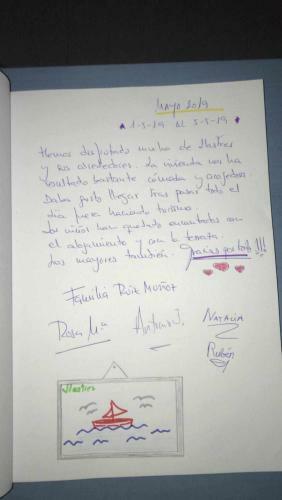 MAYO 2019
1-5-19 AL 5-5-19
Hemos disfrutado mucho de Llastres
y sus alrededores. La vivienda nos ha
resultado bastante cómoda y acogedora.
Daba gusto llegar tras pasar todo el
día fuera haciendo turismo.
Los niños han quedado encantados con
el alojamiento y con la terraza.
Los mayores también. Gracias por todo!!!
Familia Ruiz Muñoz
Rosa Mª
Antonio J.
NATALIA
Rubén
Llastres